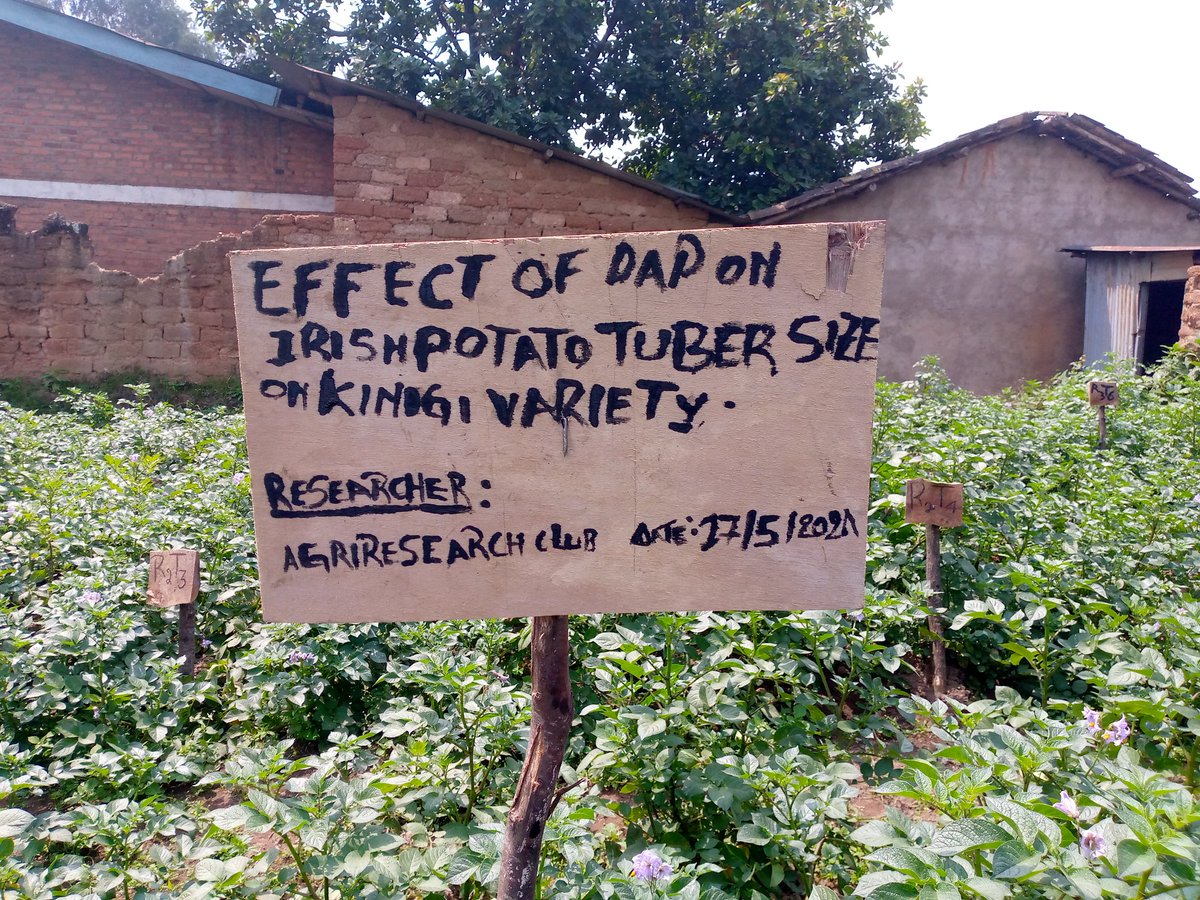 EFFECT OF DAP ON
IRISH POTATO TUBER SIZE
ON KINIGI VARIETY.
RESEARCHER:
AGRIRESEARCH CLUB DATE: 17/5/2021
R2T3
R2T4